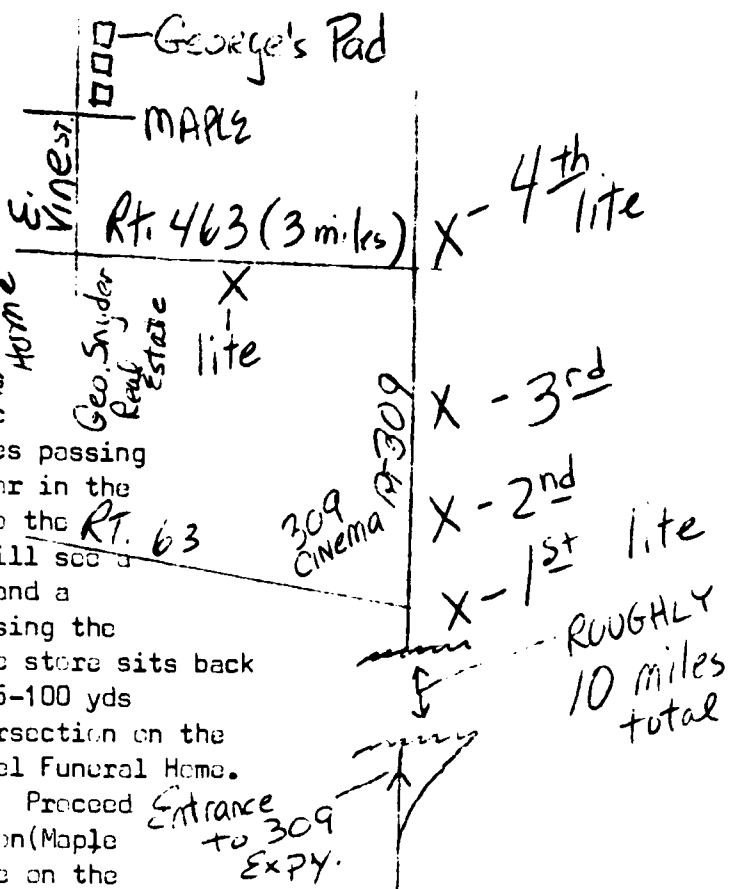 George's Pad
MAPLE
E. Vine ST.
Rt. 463 (3 miles)
X - 4th lite
X
lite
Home
Geo. Snyder Real Estate
Rt 309
X - 3rd
309 CINEMA
X - 2nd
RT. 63
X - 1st lite
ROUGHLY
10 miles
total
Entrance
to 309
EXPY.
es passing
r in the
the
ill see a
and a
sing the
store sits back
-100 yds
rsection on the
el Funeral Home.
Proceed
on(Maple
e on the